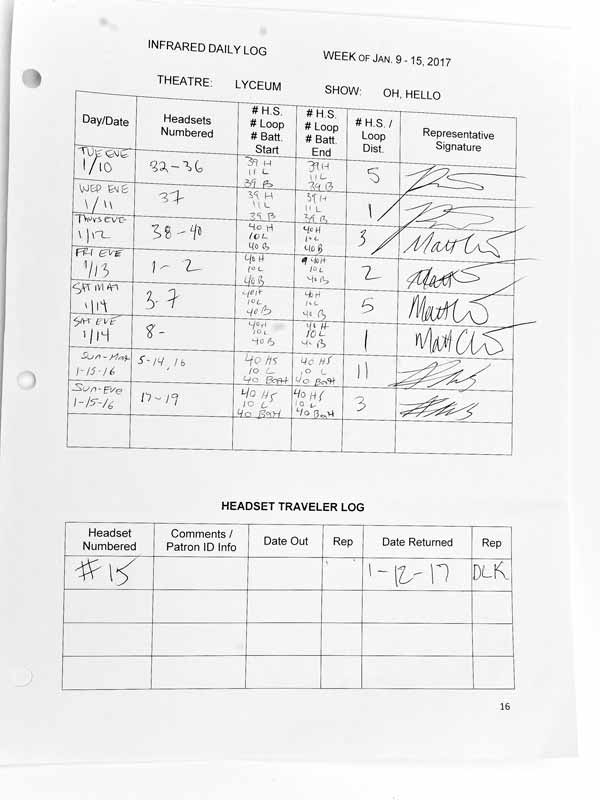 INFRARED DAILY LOG WEEK OF JAN. 9 - 15, 2017
THEATRE: LYCEUM SHOW: OH, HELLO
Day/Date Headsets Numbered # H.S. # Loop # Batt. Start # H.S. # Loop # Batt. End # H.S. / Loop Dist. Representative Signature
TUE EVE 1/10 32-36 39 H 11 L 39 B 39 H 11 L 39 B 5
WED EVE 1/11 37 39 H 11 L 39 B 39 H 11 L 39 B 1
THURS EVE 1/12 38-40 40 H 10 L 40 B 40 H 10 L 40 B 3 Matt
FRI EVE 1/13 1-2 40 H 10 L 40 B 40 H 10 L 40 B 2 Matt
SAT MAT 1/14 3-7 40 H 10 L 40 B 40 H 10 L 40 B 5 Matt
SAT EVE 1/14 8- 40 H 10 L 40 B 40 H 10 L 40 B 1 Matt
SUN-Mat 1-15-16 5-14, 16 40 HS 10 L 40 Batt 40 HS 10 L 40 Batt 11
SUN-EVE 1-15-16 17-19 40 HS 10 L 40 Batt 40 HS 10 L 40 Batt 3
HEADSET TRAVELER LOG
Headset Numbered Comments / Patron ID Info Date Out Rep Date Returned Rep
#15 1-12-17 DLK
16